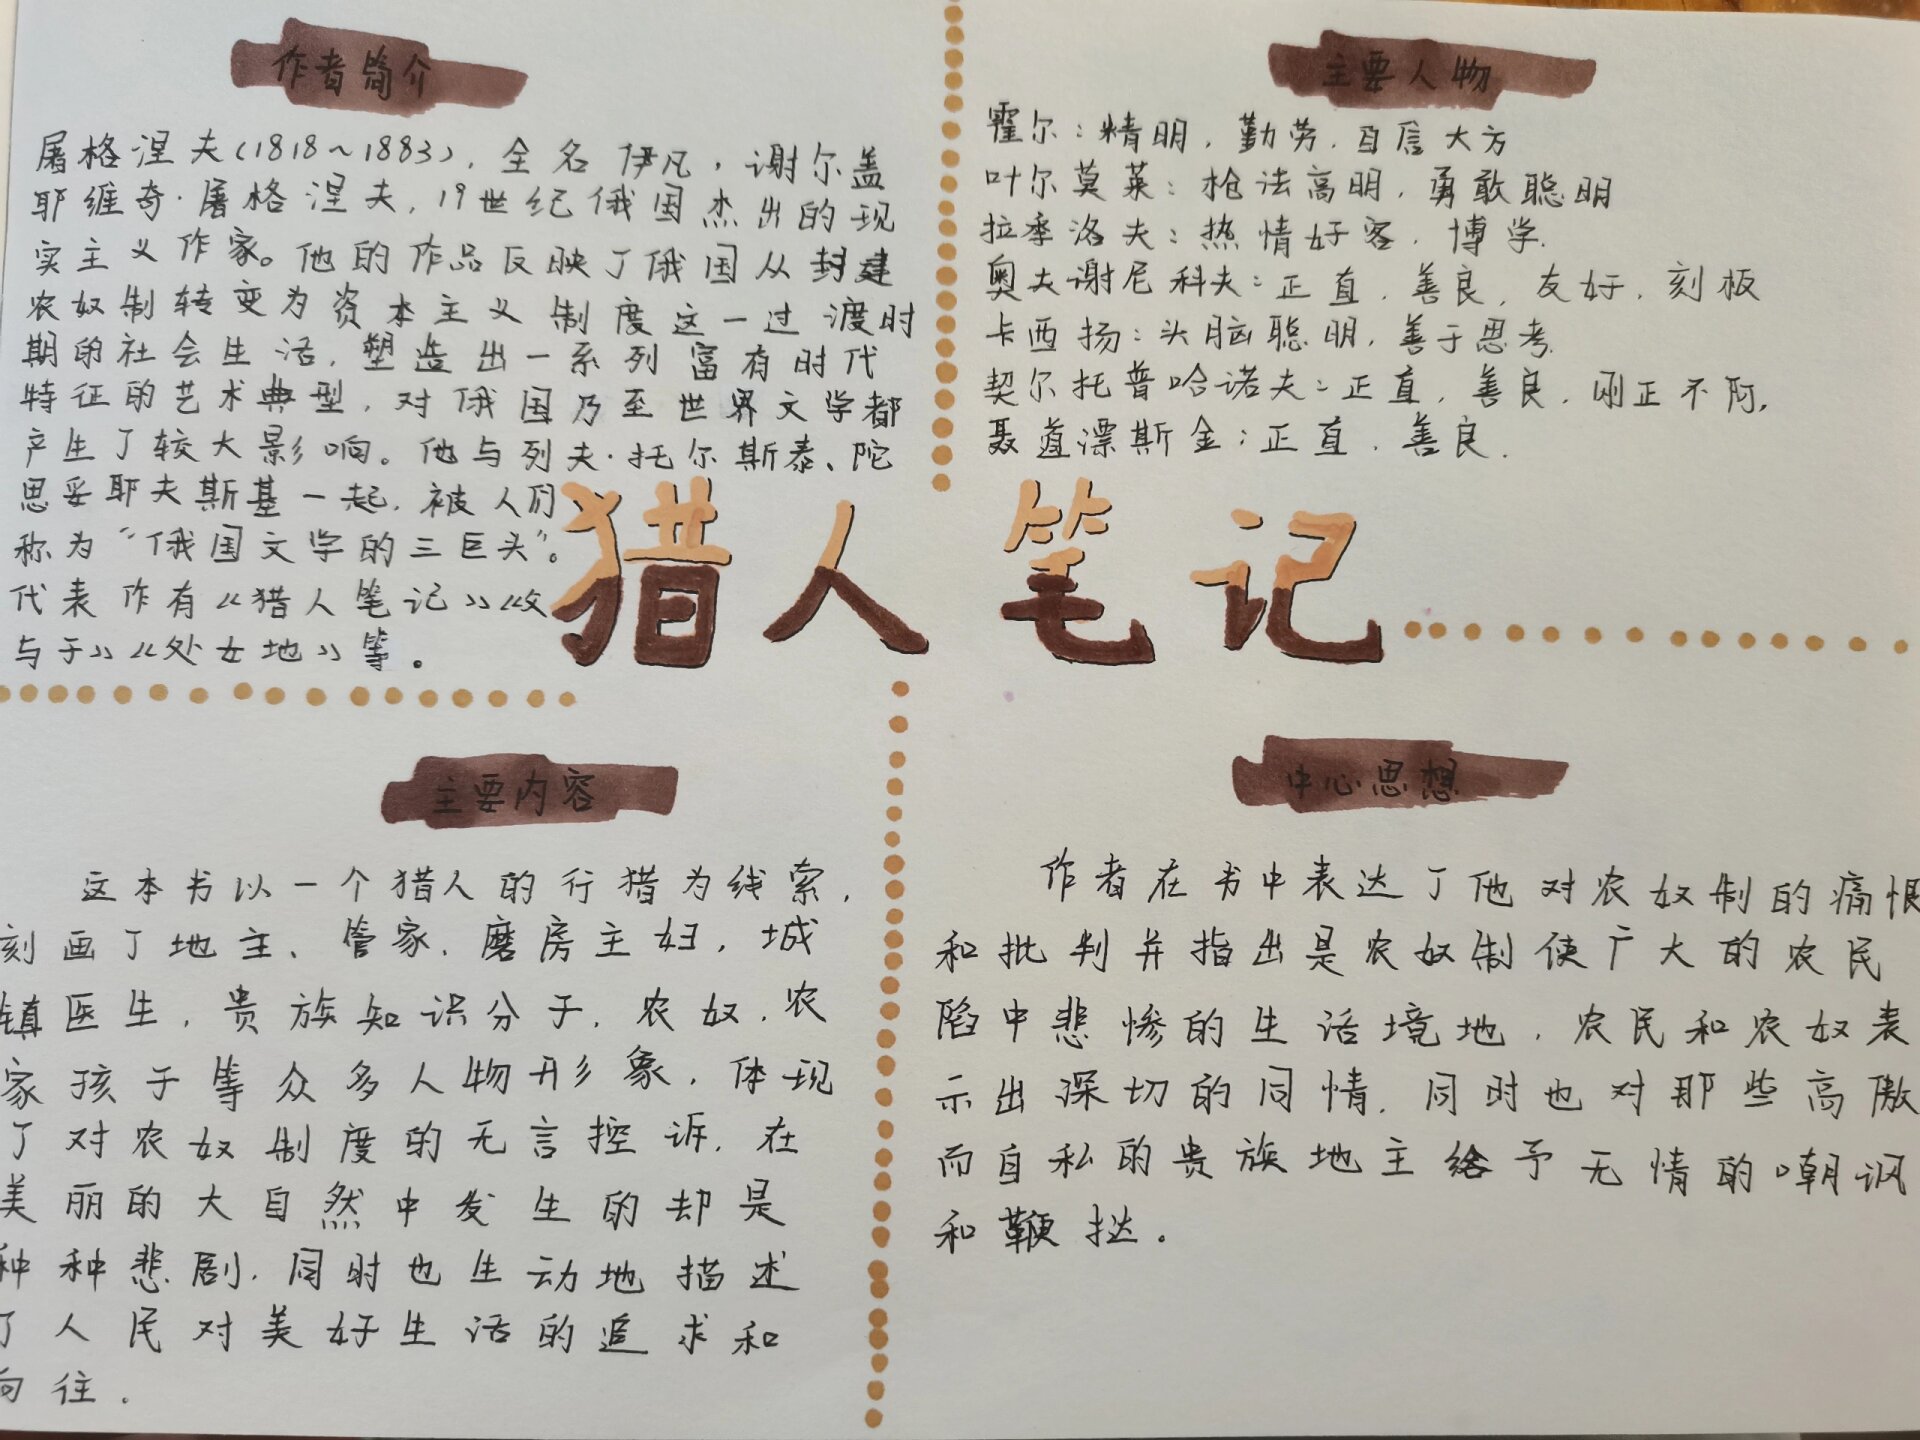 作者简介
屠格涅夫(1818~1883)，全名伊凡，谢尔盖
耶维奇·屠格涅夫，19世纪俄国杰出的现
实主义作家。他的作品反映了俄国从封建
农奴制转变为资本主义制度这一过渡时
期的社会生活，塑造出一系列富有时代
特征的艺术典型，对俄国乃至世界文学都
产生了较大影响。他与列夫·托尔斯泰、陀
思妥耶夫斯基一起，被人们
称为“俄国文学的三巨头”。
代表作有《猎人笔记》《父
与子》《处女地》等。
主要人物
霍尔：精明，勤劳，自信大方
叶尔莫莱：枪法高明，勇敢聪明
拉季洛夫：热情好客，博学.
奥夫谢尼科夫：正直，善良，友好，刻板
卡西扬：头脑聪明，善于思考.
契尔托普哈诺夫：正直，善良，刚正不阿.
聂道漂斯金：正直，善良.
猎人笔记
主要内容
这本书以一个猎人的行猎为线索，
刻画了地主、管家，磨房主妇，城
镇医生，贵族知识分子，农奴，农
家孩子等众多人物形象，体现
了对农奴制度的无言控诉，在
美丽的大自然中发生的却是
种种悲剧，同时也生动地描述
了人民对美好生活的追求和
向往.
中心思想
作者在书中表达了他对农奴制的痛恨
和批判并指出是农奴制使广大的农民
陷中悲惨的生活境地，农民和农奴表
示出深切的同情，同时也对那些高傲
而自私的贵族地主给予无情的嘲讽
和鞭挞。